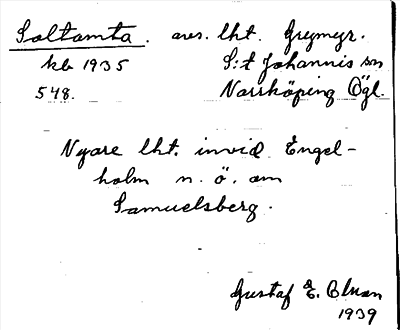 Soltamta. avs. lht. Grymyr.
kb 1935 S:t Johannis sn
548. Norrköping Ögl.
Nyare lht. invid Engel-
holm n. ö. om
Samuelsberg.
Gustaf E.
1939